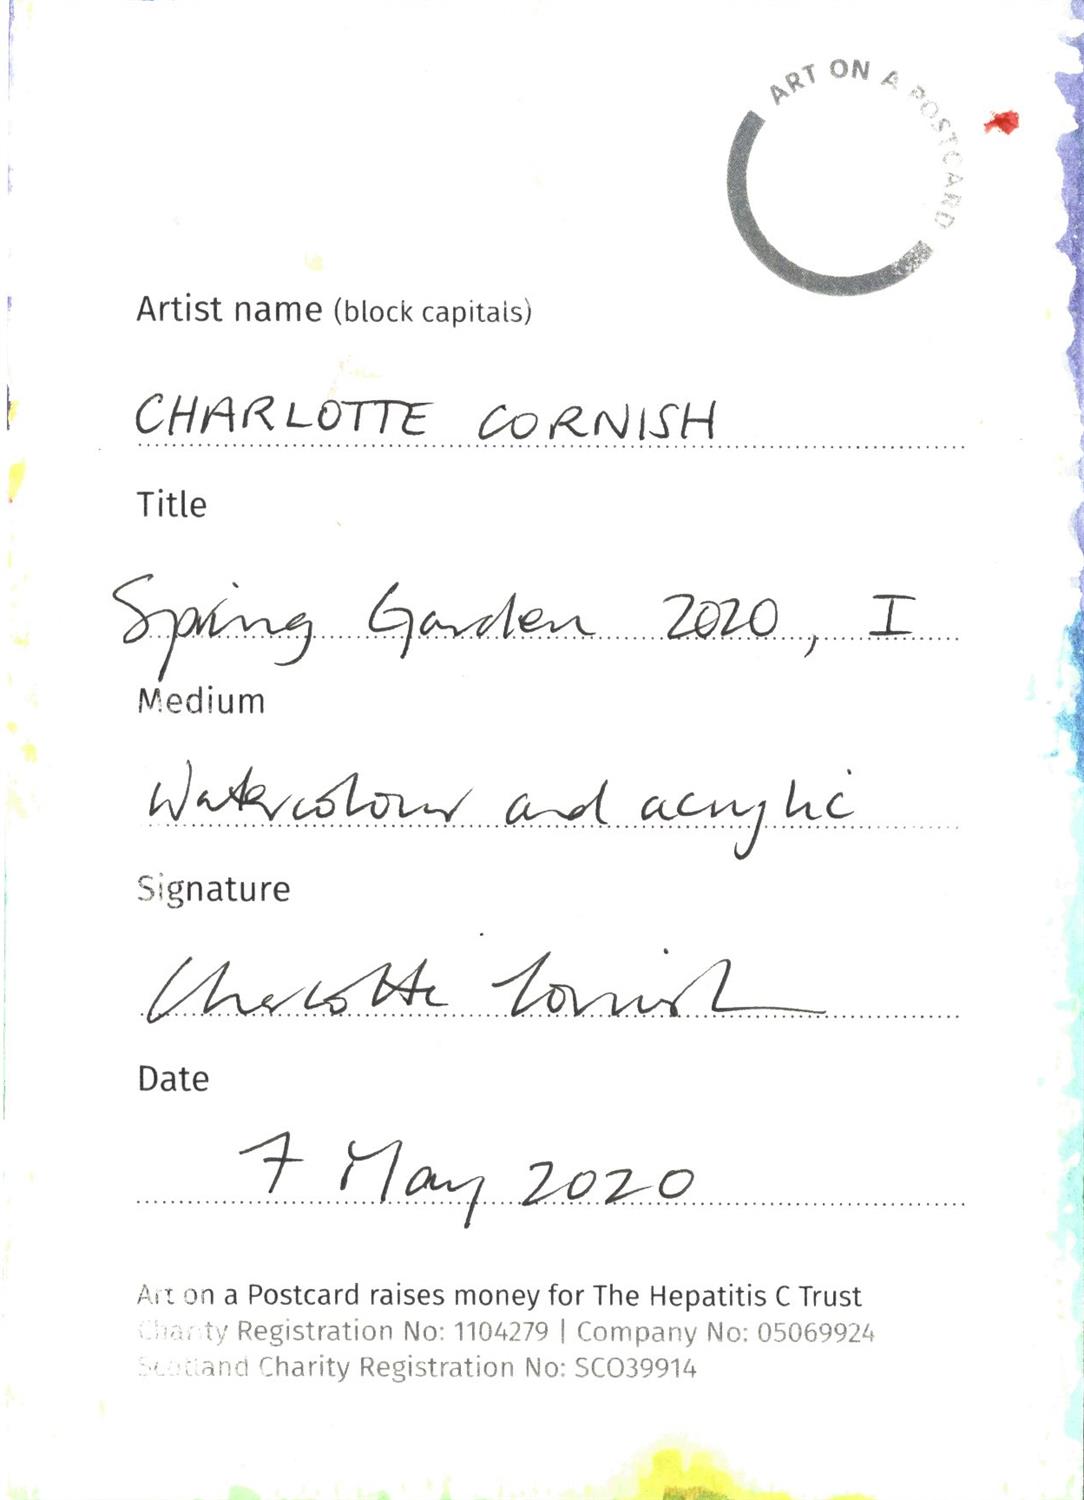 ART ON A POSTCARD
Artist name (block capitals)
CHARLOTTE CORNISH
Title
Spring Garden 2020, I
Medium
Watercolour and acrylic
Signature
Charlotte Cornish
Date
7 May 2020
Art on a Postcard raises money for The Hepatitis C Trust
Charity Registration No: 1104279 | Company No: 05069924
Scotland Charity Registration No: SCO39914